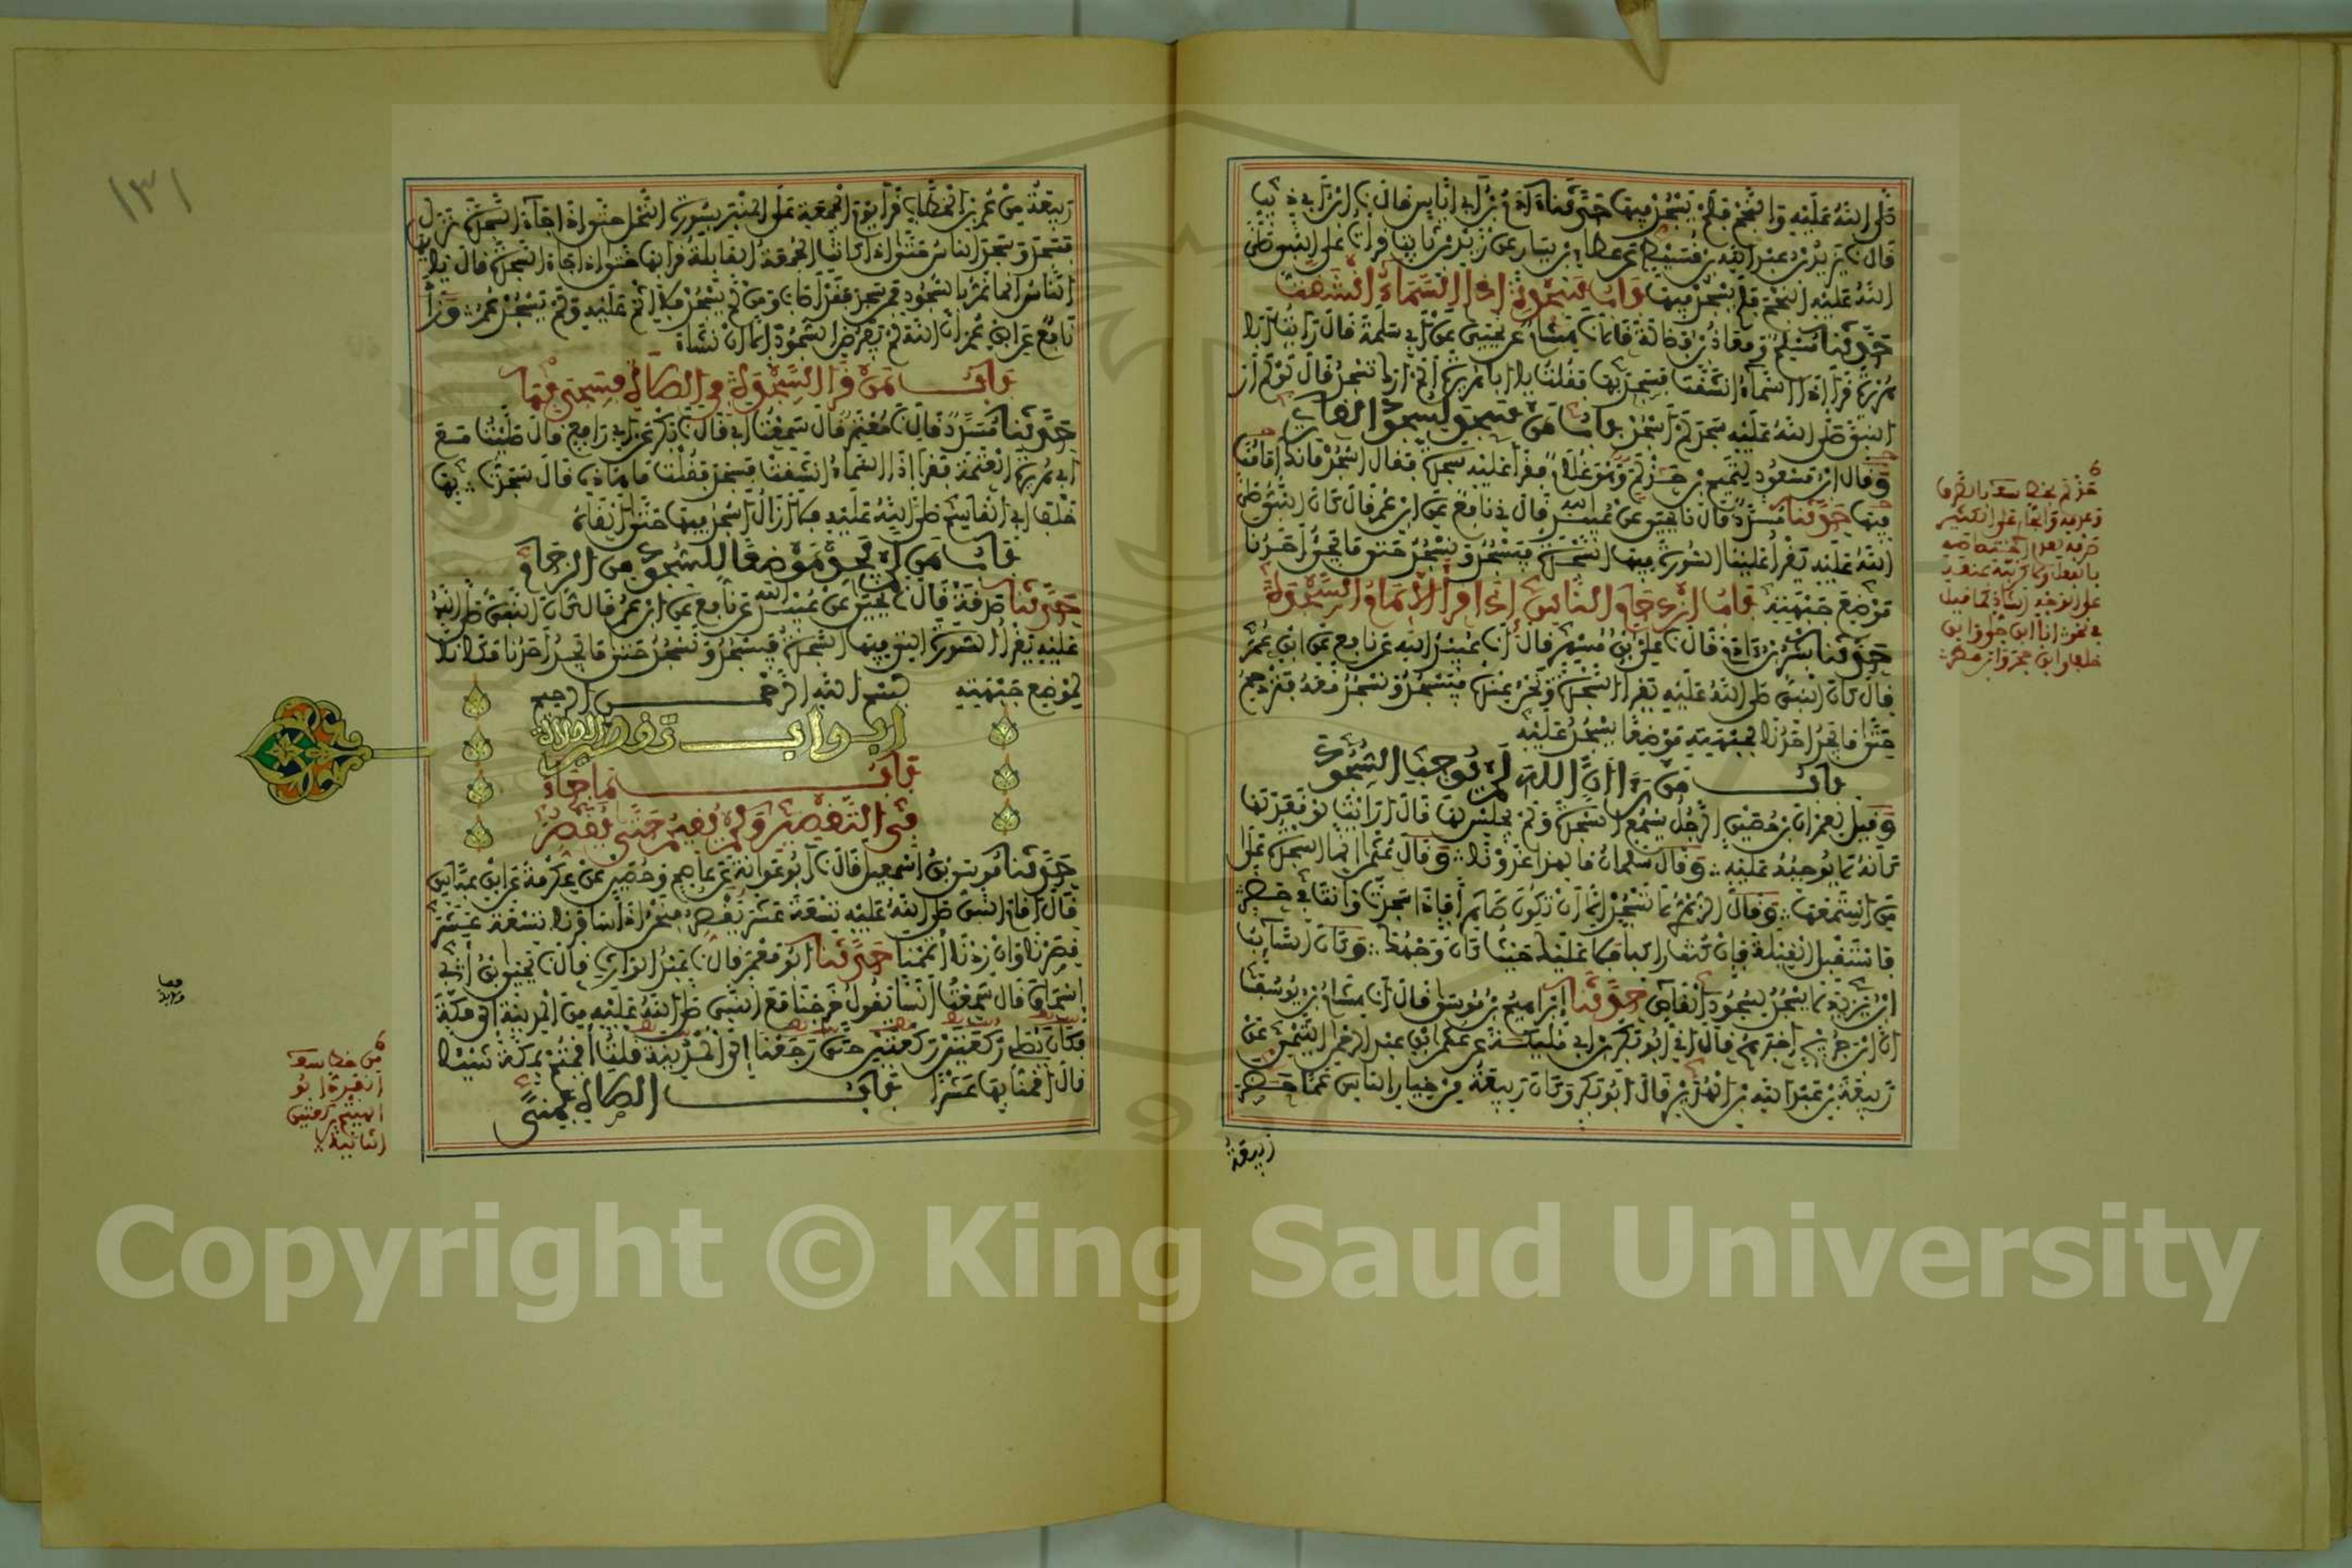 صلى الله عليه والنجم فلم يسجد فيها حدثنا آدم بن أبي إياس قال نا ابن أبي ذيب
قال نا يزيد بن عبد الله بن قسيط عن عطاء بن يسار عن زيد بن ثابت قرأت على النبي صلى
الله عليه والنجم فلم يسجد فيها باب سجدة إذا السماء انشقت
حدثنا مسلم ومعاذ بن فضالة قالا نا هشام عن يحيى عن أبي سلمة قال رأيت أبا
هريرة قرأ إذا السماء انشقت فسجد بها فقلت يا أبا هريرة ألم أرك تسجد قال لو لم أر
النبي صلى الله عليه سجد لم أسجد باب من سجد لسجود القارئ
وقال ابن مسعود لتميم بن حذلم وهو غلام فقرأ عليه سجدة فقال اسجد فإنك إمامنا
فيها حدثنا مسدد قال نا يحيى عن عبيد الله قال ني نافع عن ابن عمر قال كان النبي صلى
الله عليه يقرأ علينا السورة فيها السجدة فيسجد ونسجد حتى ما يجد أحدنا
موضع جبهته باب ازدحام الناس إذا قرأ الإمام السجدة
حدثنا بشر بن آدم قال نا علي بن مسهر قال أنا عبيد الله عن نافع عن ابن عمر
قال كان النبي صلى الله عليه يقرأ السجدة ونحن عنده فيسجد ونسجد معه فنزدحم
حتى ما يجد أحدنا لجبهته موضعا يسجد عليه
باب من رأى أن الله لم يوجب السجود
وقيل لعمران بن حصين الرجل يسمع السجدة ولم يجلس لها قال أرأيت لو قعد لها
كأنه لا يوجبه عليه وقال سلمان ما لهذا غدونا وقال عثمان إنما السجدة على
من استمعها وقال الزهري لا تسجد إلا أن تكون طاهرا فإذا سجدت وأنت في حضر
فاستقبل القبلة فإن كنت راكبا فلا عليك حيث كان وجهك وكان السائب
ابن يزيد لا يسجد لسجود القاص حدثنا إبراهيم بن موسى قال أنا هشام بن يوسف
أن ابن جريج أخبرهم قال أني أبو بكر بن أبي مليكة عن عثمان بن عبد الرحمن التيمي عن
ربيعة بن عبد الله بن الهدير قال أبو بكر وكان ربيعة من خيار الناس عما حضر
ربيعة
ربيعة من عمر بن الخطاب قرأ يوم الجمعة على المنبر بسورة النحل حتى إذا جاء السجدة نزل
فسجد وسجد الناس حتى إذا كانت الجمعة القابلة قرأ بها حتى إذا جاء السجدة قال يا أيها
الناس إنما نمر بالسجود فمن سجد فقد أصاب ومن لم يسجد فلا إثم عليه ولم يسجد عمر وزاد
نافع عن ابن عمر أن الله لم يفرض السجود إلا أن نشاء
باب من قرأ السجدة في الصلاة فسجد بها
حدثنا مسدد قال نا معتمر قال سمعت أبي قال نا بكر عن أبي رافع قال صليت مع
أبي هريرة العتمة فقرأ إذا السماء انشقت فسجد فقلت ما هذه قال سجدت بها
خلف أبي القاسم صلى الله عليه فلا أزال أسجد فيها حتى ألقاه
باب من لم يجد موضعا للسجود من الزحام
حدثنا صدقة قال نا يحيى عن عبيد الله عن نافع عن ابن عمر قال كان النبي صلى الله
عليه يقرأ السورة التي فيها السجدة فيسجد ونسجد حتى ما يجد أحدنا مكانا
لموضع جبهته بسم الله الرحمن الرحيم
ابواب تقصير الصلاة
باب ما جاء
في التقصير وكم يقيم حتى يقصر
حدثنا موسى بن إسمعيل قال نا أبو عوانة عن عاصم وحصين عن عكرمة عن ابن عباس
قال أقام النبي صلى الله عليه تسعة عشر يقصر فنحن إذا سافرنا تسعة عشر
قصرنا وإن زدنا أتممنا حدثنا أبو معمر قال نا عبد الوارث قال نا يحيى بن أبي
إسحاق قال سمعت أنسا يقول خرجنا مع النبي صلى الله عليه من المدينة إلى مكة
فكان يصلي ركعتين ركعتين حتى رجعنا إلى المدينة قلت أقمتم بمكة شيئا
قال أقمنا بها عشرا باب الصلاة بمنى
١٣١